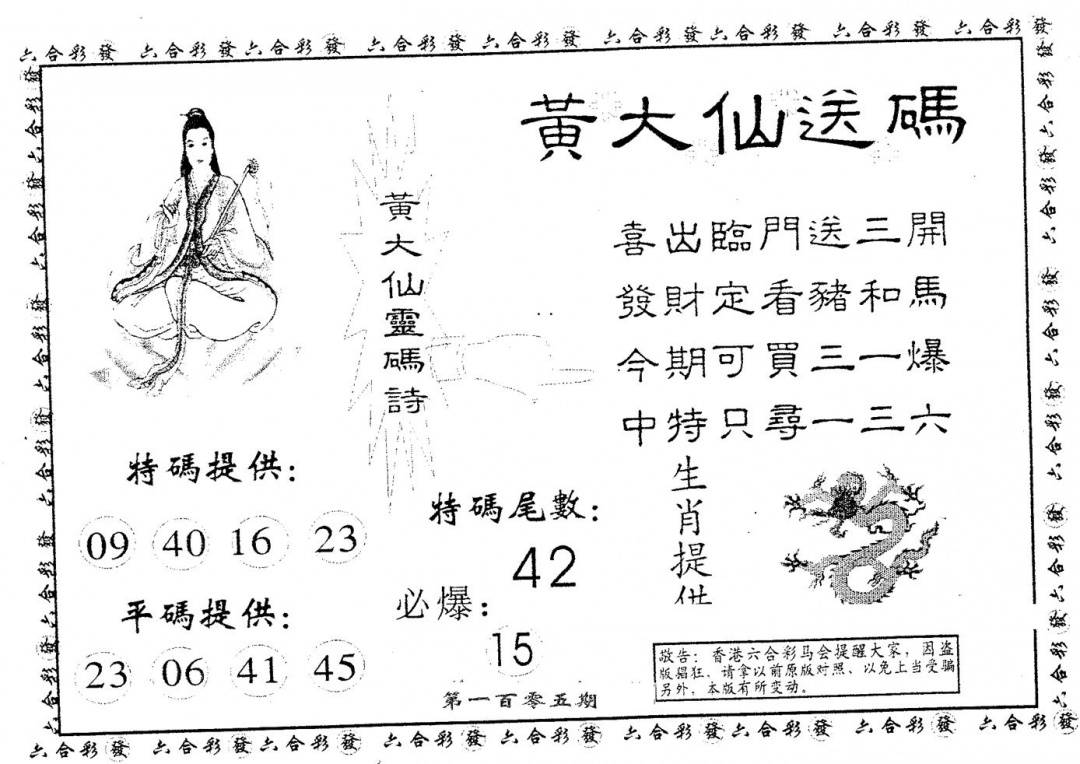 六合彩發 六合彩發 六合彩發 六合彩發 六合彩發 六合彩發 六合彩發 六合彩發 六合彩發
黃大仙送碼
黃大仙靈碼詩
喜出臨門送三開
發財定看豬和馬
今期可買三一爆
中特只尋一三六
特碼提供：
09 40 16 23
平碼提供：
23 06 41 45
特碼尾數：
42
必爆：
15
生肖提供
第一百零五期
敬告：香港六合彩马会提醒大家，因盗
版猖狂，请拿以前原版对照，以免上当受骗
另外，本版有所变动。
六合彩發 六合彩發 六合彩發 六合彩發 六合彩發 六合彩發 六合彩發 六合彩發 六合彩發